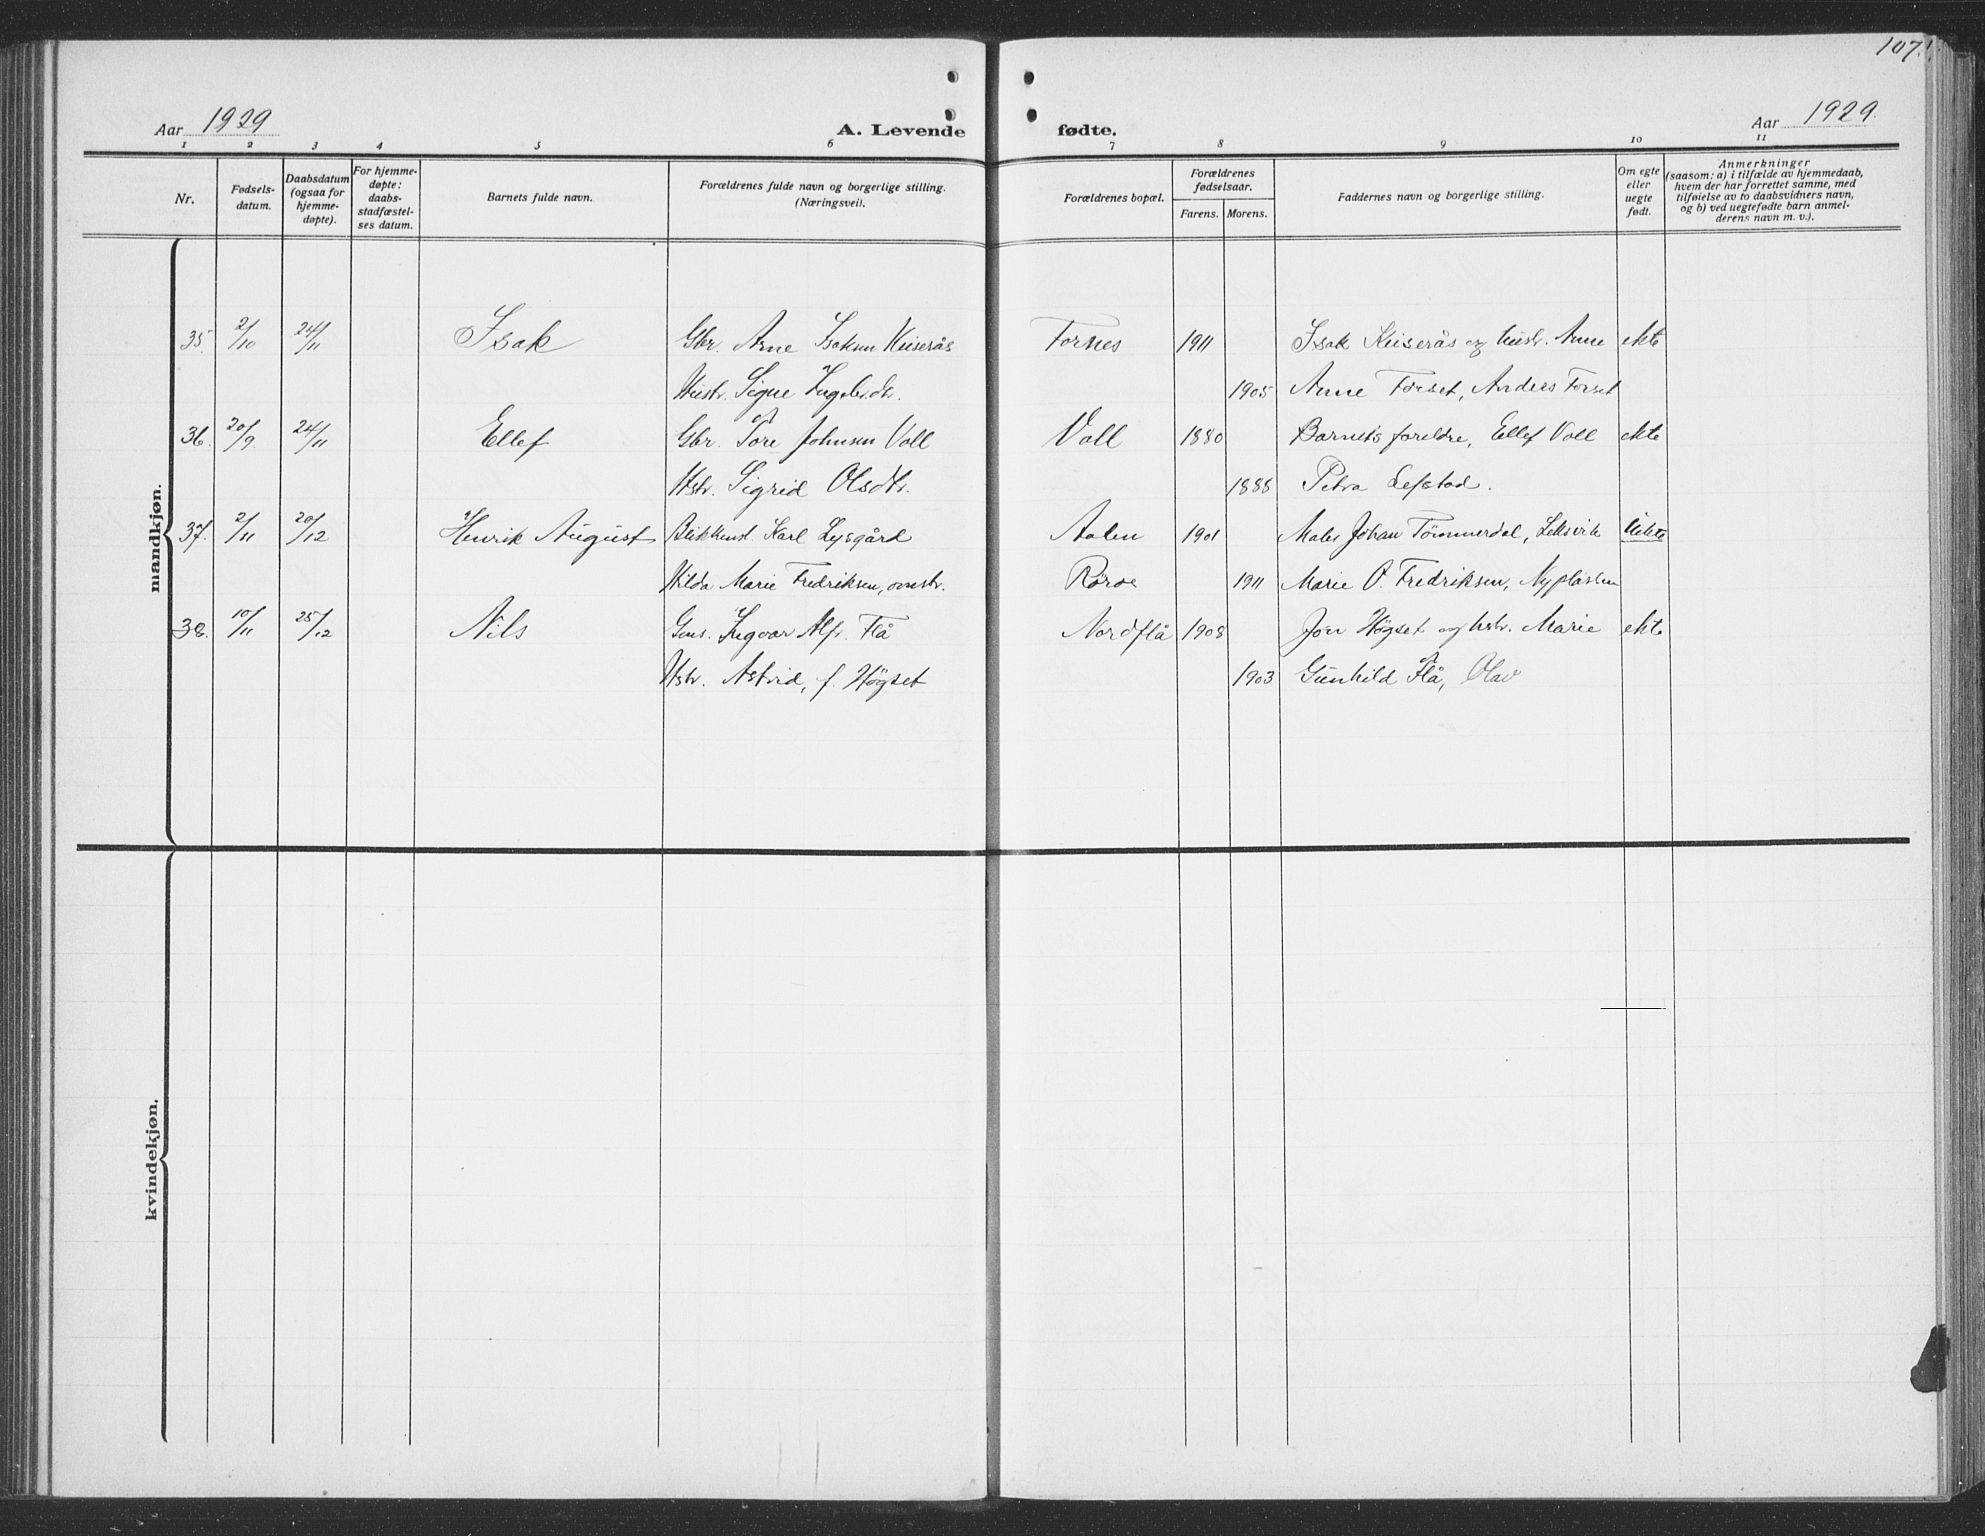 107.
Aar 1929 A. Levende fødte. Aar 1929.
1 2 3 4 5 6 7 8 9 10 11
Nr.
Fødsels-
datum.
Daabsdatum
(ogsaa for
hjemme-
døpte).
For hjemme-
døpte:
daabs-
stadfæstel-
ses datum.
Barnets fulde navn.
Forældrenes fulde navn og borgerlige stilling.
(Næringsvei).
Forældrenes bopæl.
Forældrenes
fødselsaar.
Farens. Morens.
Faddernes navn og borgerlige stilling.
Om egte
eller
uegte
født.
Anmerkninger
(saasom: a) i tilfælde av hjemmedaab,
hvem der har forrettet samme, med
tilføielse av to daabsvidners navn,
og b) ved uegtefødte barn anmel-
derens navn m. v.).
mandkjøn.
35. 2/10 24/11 Isak Gbr. Arne Isaksen Kuserås Fornes 1911 Isak Kuserås og hustr. Anne ekte
Hustr. Signe Ingebr.dtr. 1905 Anne Forset, Anders Forset
36. 20/9 24/11 Ellef Gbr. Tore Johnsen Voll Voll 1880 Barnets foreldre, Ellef Voll ekte
Hstr. Sigrid Olsdtr. 1888 Petra Lefstad.
37. 2/11 20/12 Henrik August Blikkensl. Karl Lysgård Aalen 1901 Maler Johan Tömmerdal, Leksvik Uekte
Hilda Marie Fredriksen, Röros 1911 Marie O. Fredriksen, Nyplassen
38. 10/11 25/12 Nils Gms. Ingvar Alfr. Flå Nordflå 1908 Jon Högset og hstr. Marie ekte
Hstr. Astrid, f. Högset 1903 Gunhild Flå, Olav
kvindekjøn.